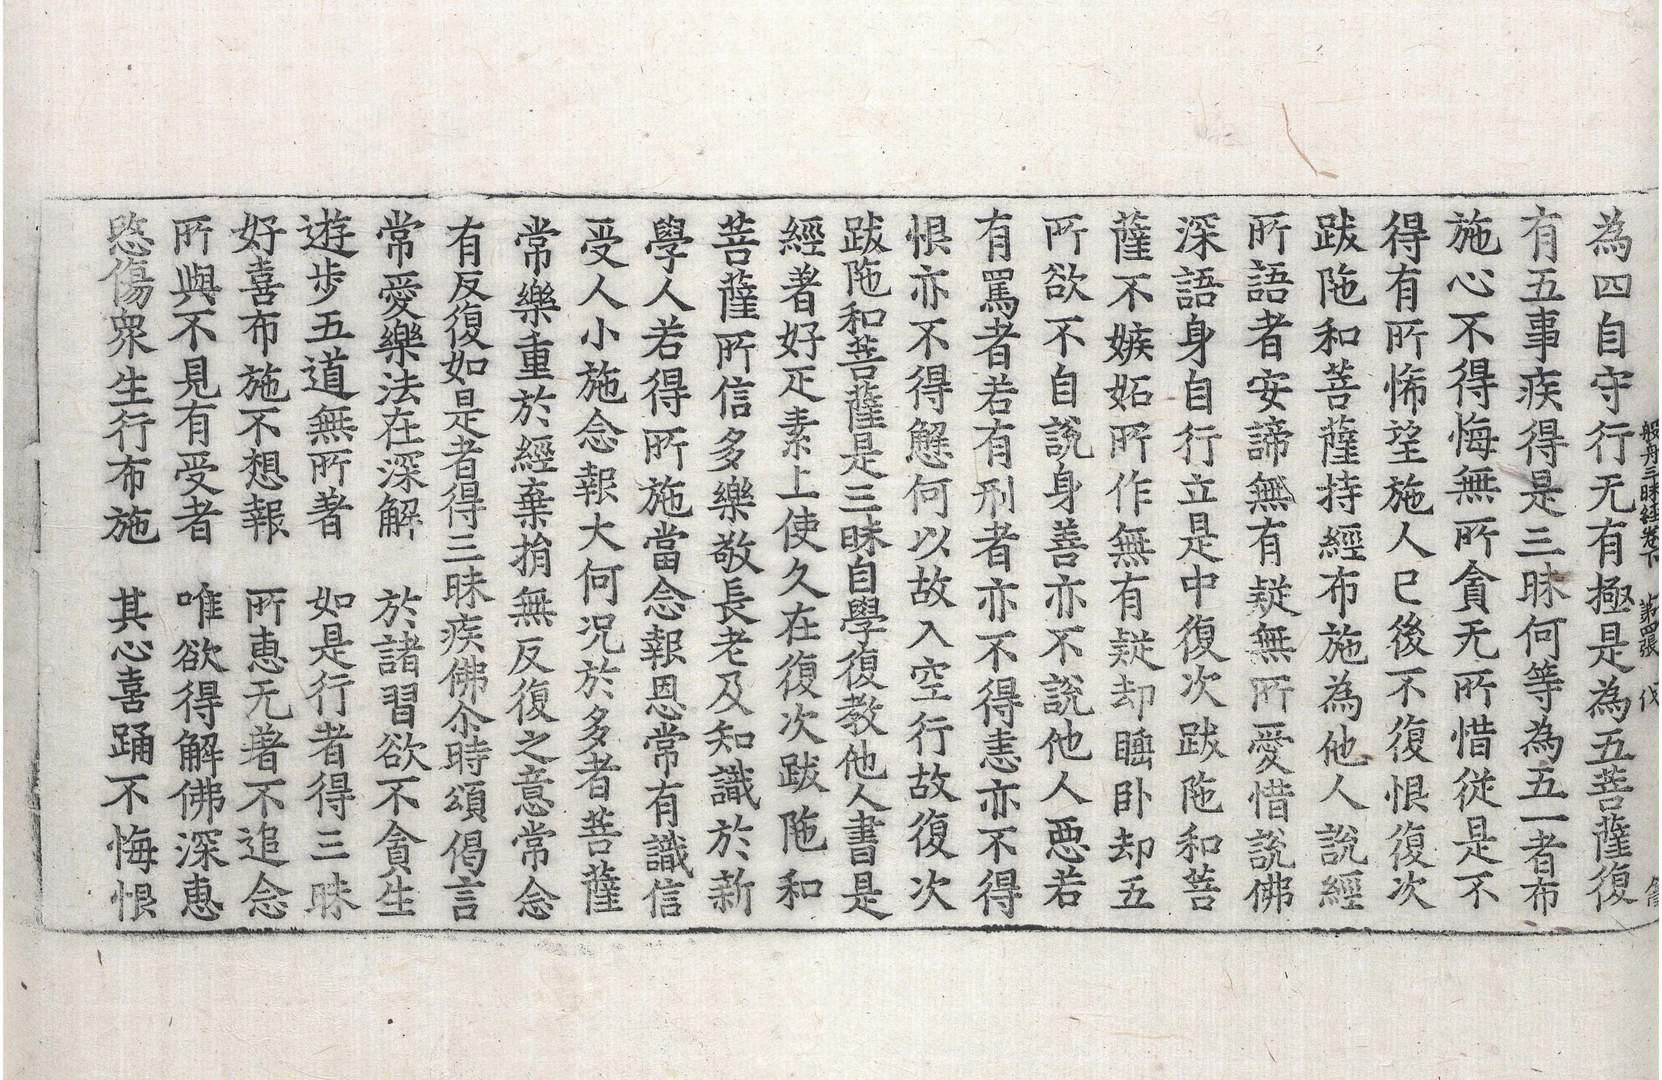 般舟三昧経卷下 第四張 伐
為四自守行无有極是為五菩薩復
有五事疾得是三昧何等為五一者布
施心不得悔無所貪无所惜從是不
得有所悕望施人已後不復恨復次
跋陁和菩薩持經布施為他人說經
所語者安諦無有疑無所愛惜說佛
深語身自行立是中復次跋陁和菩
薩不嫉妬所作無有疑却睡卧却五
所欲不自說身善亦不說他人惡若
有罵者若有刑者亦不得恚亦不得
恨亦不得懈何以故入空行故復次
跋陁和菩薩是三昧自學復教他人書是
經著好疋素上使久在復次跋陁和
菩薩所信多樂敬長老及知識於新
學人若得所施當念報恩常有識信
受人小施念報大何况於多者菩薩
常樂重於經棄捐無反復之意常念
有反復如是者得三昧疾佛尒時頌偈言
常愛樂法在深解　於諸習欲不貪生
遊步五道無所著　如是行者得三昧
好喜布施不想報　所惠无著不追念
所與不見有受者　唯欲得解佛深惠
愍傷衆生行布施　其心喜踊不悔恨